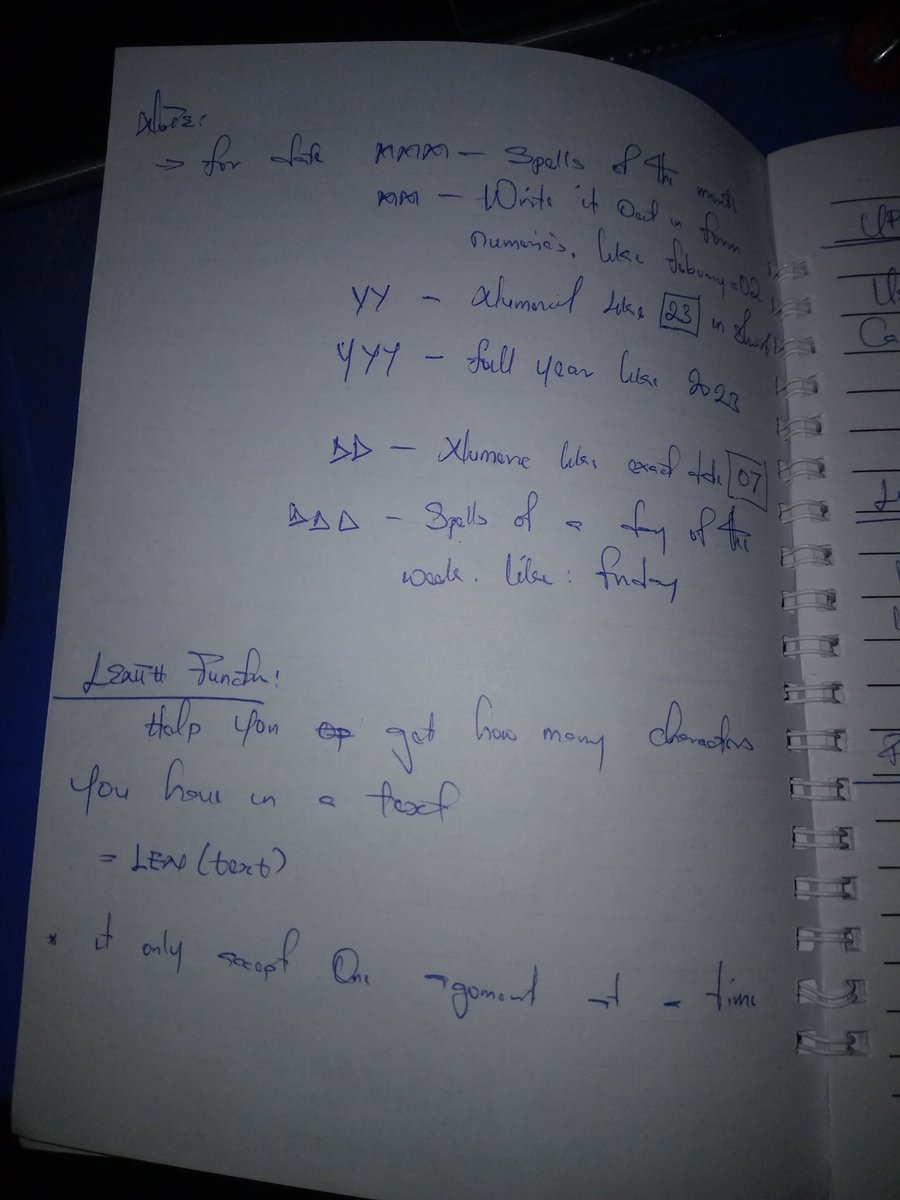 Note:
→ for date MMM — Spells of the month
MM — Write it out in form
numerics. like february=02
YY — Numerical like 23 in short
YYY — full year like 2023
DD — Numeric like exact date 07
DDD — Spells of a day of the
week. like: friday
Function:
Help you get how many characters
you have in a text
= LEN (text)
* it only except One argument at a time
UP
Ca